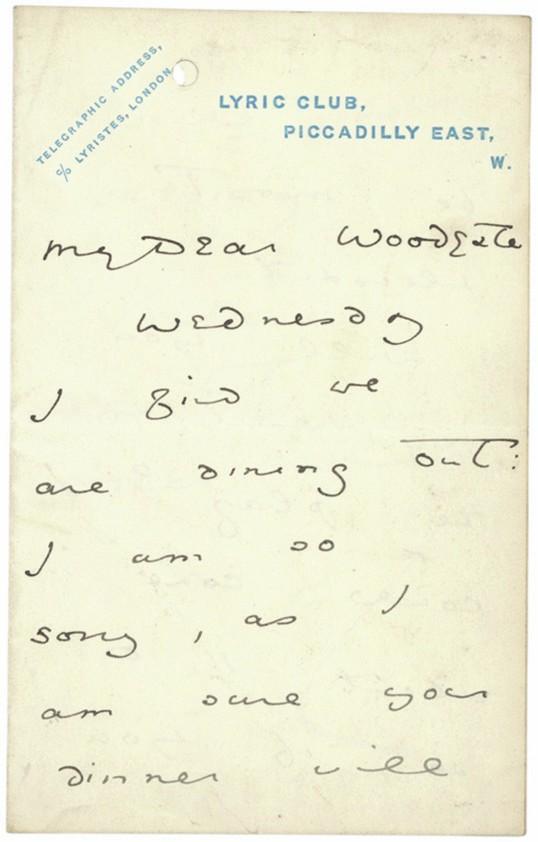 TELEGRAPHIC ADDRESS,
c/o LYRISTES, LONDON.
LYRIC CLUB,
PICCADILLY EAST,
W.
My Dear Woodgate
Wednesday
I find we
are dining out:
I am so
sorry, as I
am sure your
dinner will